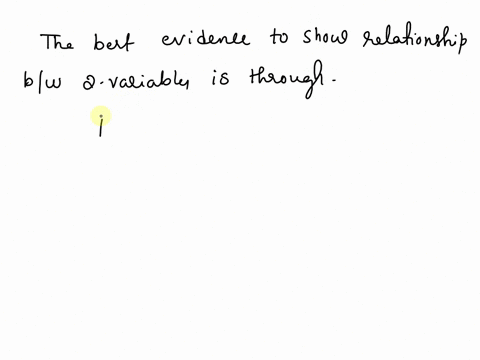 The best evidence to show relationship
b/w 2-variably is through.